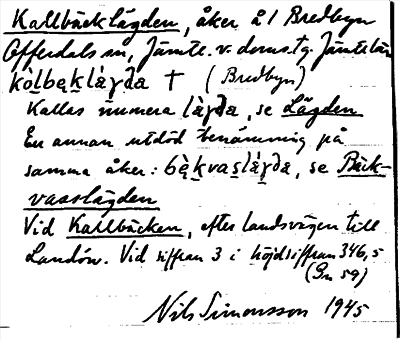 Kallbäckslägden, åker å 1 Bredbyn
Offerdals sn, Jämtl. v. doms.tg. Jämtl. län
kòlbękslàɣda † (Bredbyn)
Kallas numera làɣda, se Lägden
En annan utdöd benämning på
samma åker: bękvaslàɣda, se Bäck-
vasslägden
Vid Kallbäcken, efter landsvägen till
Landön. Vid siffran 3 i höjdsiffran 346,5
(Gn 59)
Nils Simonsson 1945